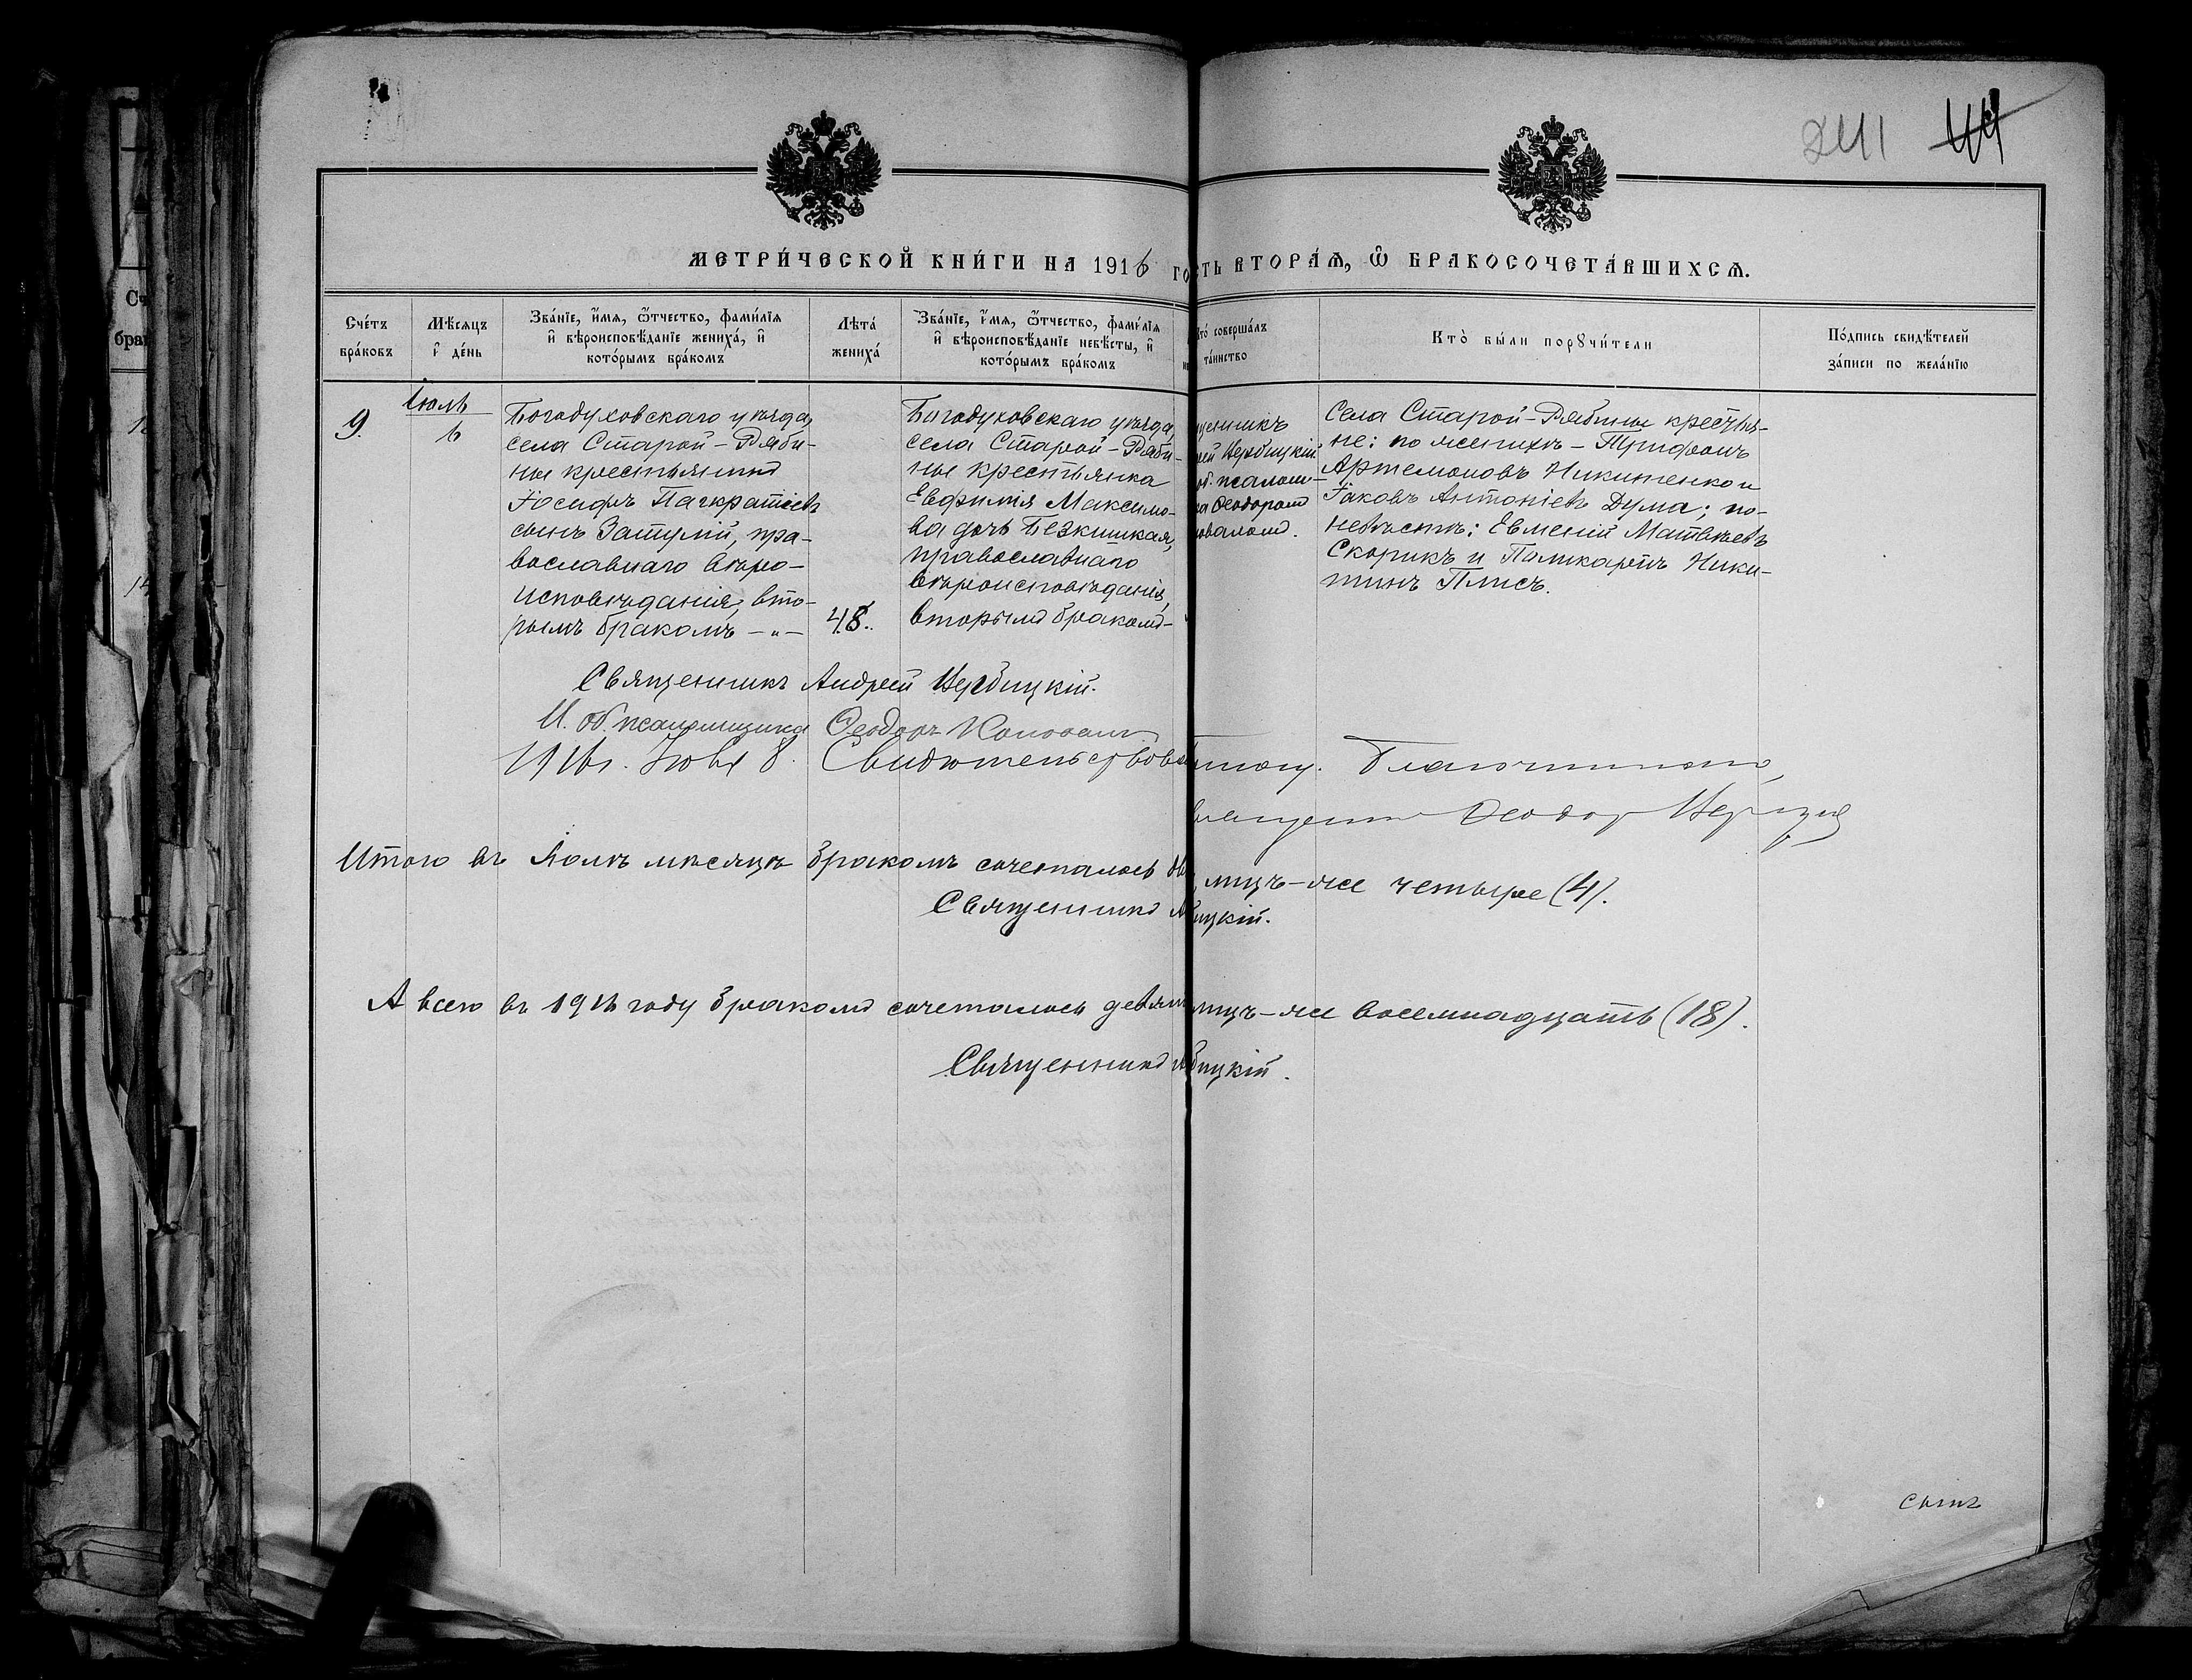 241 44
МЕТРИ́ЧЕСКОЙ КНИ́ГИ НА 1916 ГО
СТЬ ВТОРА́Я, Ѽ БРАКОСОЧЕТА́ВШИХСЯ.
Сче́тъ бра́ковъ
Мѣ́сяцъ и҆ де́нь
Зва́нїе, и҆́мя, ѻ҆́тчество, фами́лїя
и҆ вѣроисповѣ́данїе жениха́, и҆
кото́рымъ бра́комъ
Лѣта́ жениха́
Зва́нїе, и҆́мя, ѻ҆́тчество, фами́лїя
и҆ вѣроисповѣ́данїе невѣ́сты, и҆
кото́рымъ бра́комъ
то̀ соверша́лъ
та́инство
Кто̀ бы́ли порꙋчи́тели
По́дпись свидѣ́телей
за́писи по жела́нїю
9.
Іюль
6
Богодуховскаго уѣзда,
села Старой-Ряби-
ны крестьянинъ
Іосифъ Панкратіевъ
сынъ Затулій, пра-
вославнаго вѣро-
исповѣданія, вто-
рымъ бракомъ -„-
48.
Богодуховскаго уѣзда,
села Старой-Ряби-
ны крестьянка
Евфимія Максимо-
ва дочь Безкишкая,
православнаго
вѣроисповѣданія,
вторымъ бракомъ-
щенникъ
рей Вербицкій
об. псалом-
ка Ѳеодоромъ
новаломъ.
Села Старой-Рябины крестья-
не: по женихѣ - Трифонъ
Артемоновъ Никитенко и
Іаковъ Антоніевъ Дума; по-
невѣстѣ: Евмений Матвѣевъ
Скорикъ и Поликарпъ Ники-
тинъ Плисъ.
Священникъ Андрей Вербицкій.
И. об. псаломщика Ѳеодоръ Коновалъ
1916г. Іюля 8. Свидѣтельствова
Благочинного,
Ѳеодор
Итого въ Іюлѣ мѣсяцѣ бракомъ сочеталось дв
лицъ-же четыре (4).
Священникъ А
ицкій.
А всего въ 1916 году бракомъ сочеталось девят
лицъ-же восемнадцать (18).
Священникъ А
бицкій.
Ст
бра